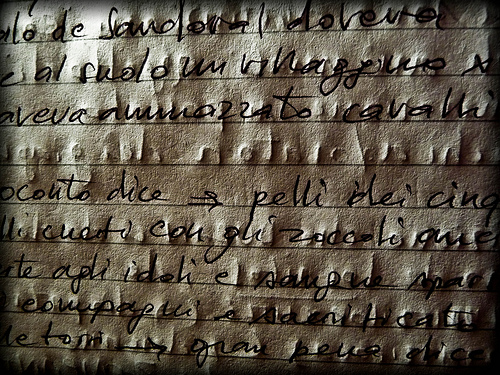 alò de Sandoval doveva
e al suolo un villaggino x
aveva ammazzato i cavalli
oconto dice → pelli dei cinq
lli cuciti con gli zoccoli ane
rte agli idoli e l sangue spar
i compagni e sacrificato
le torri → gran pena dice